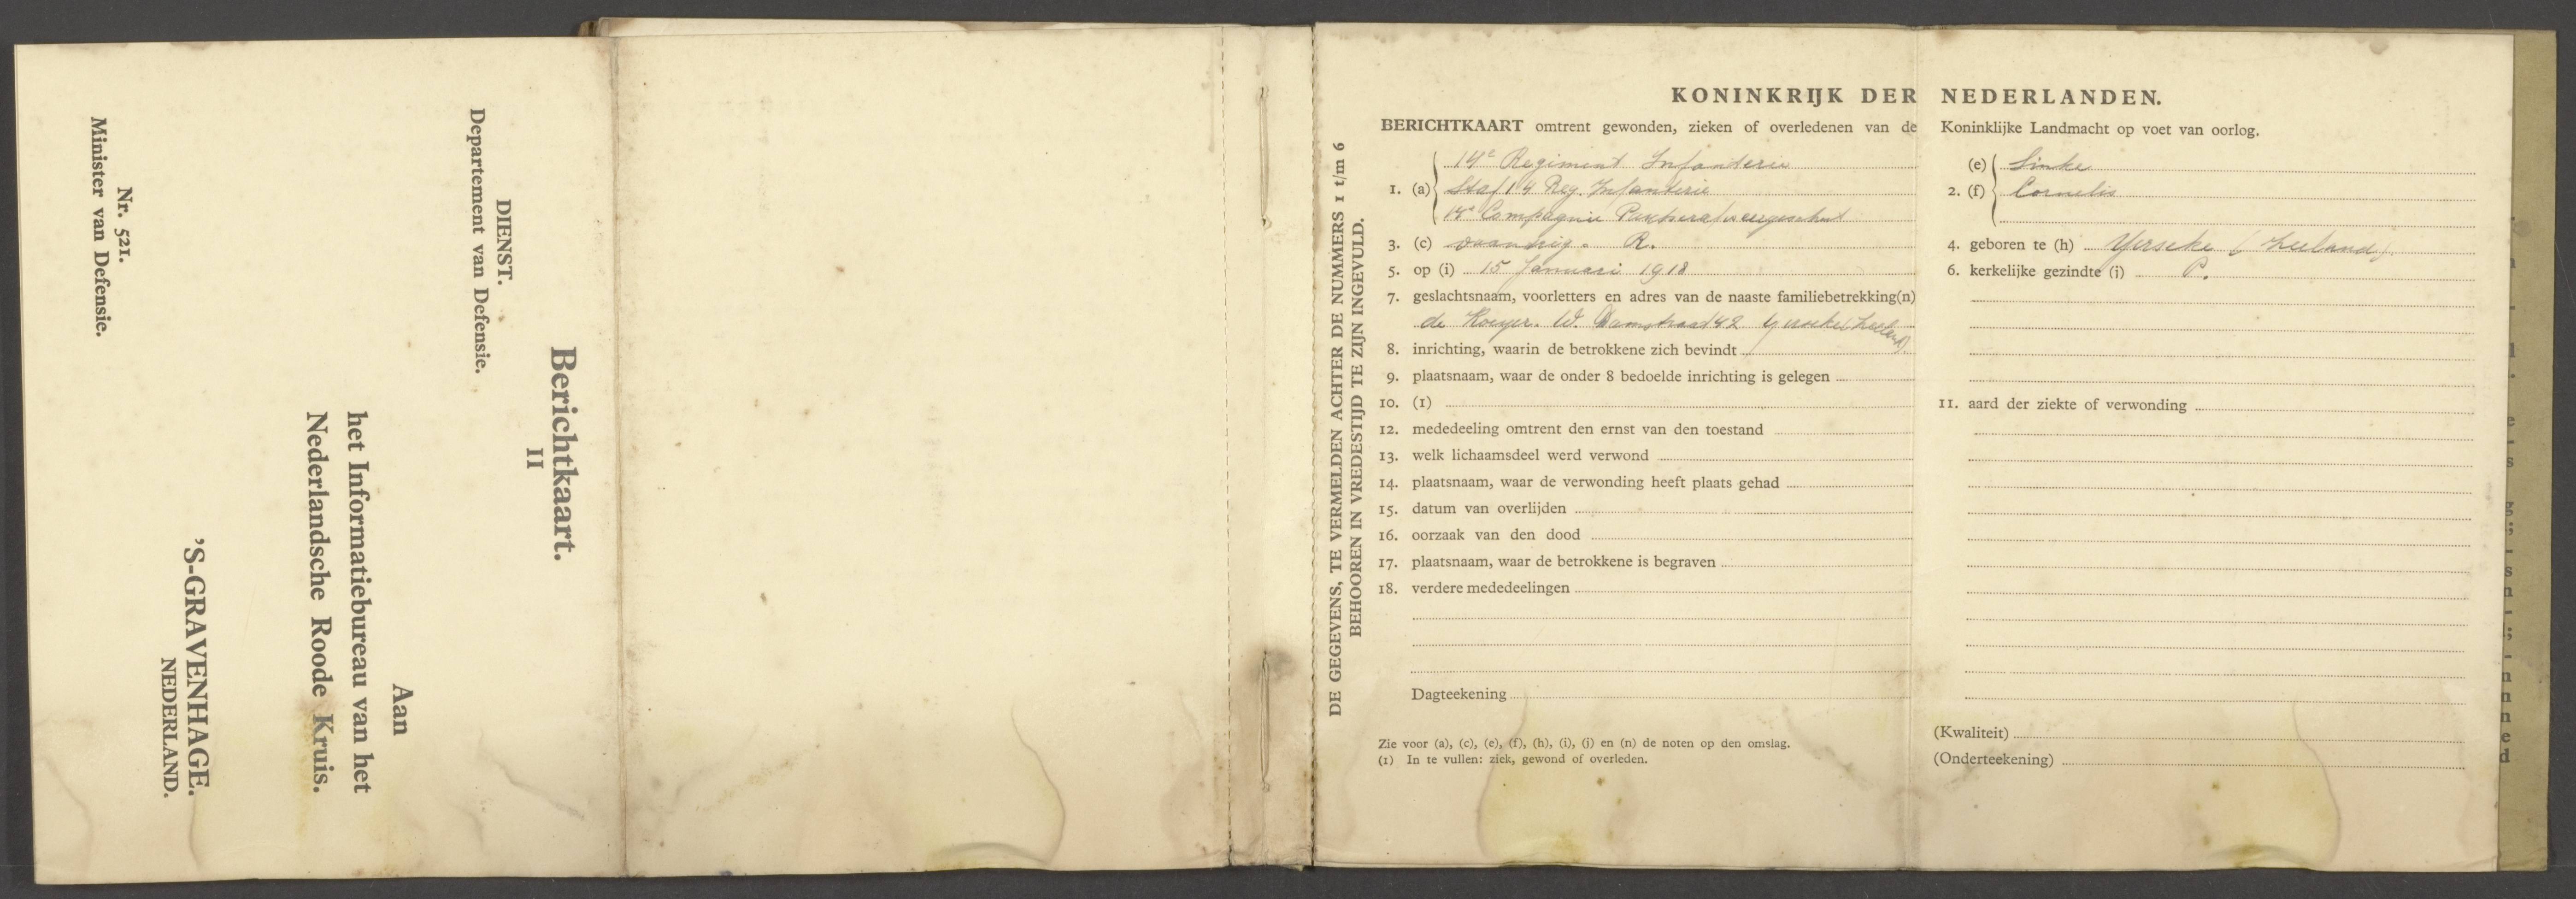 Berichtkaart.
II
DIENST.
Departement van Defensie.
Aan
het Informatiebureau van het
Nederlandsche Roode Kruis.
'S-GRAVENHAGE.
NEDERLAND.
Nr. 521.
Minister van Defensie.
DE GEGEVENS, TE VERMELDEN ACHTER DE NUMMERS 1 t/m 6
BEHOOREN IN VREDESTIJD TE ZIJN INGEVULD.
KONINKRIJK DER NEDERLANDEN.
BERICHTKAART omtrent gewonden, zieken of overledenen van de Koninklijke Landmacht op voet van oorlog.
14e Regiment Infanterie
1. (a) Staf 14 Reg. Infanterie
14e Compagnie
(e) Sinke
2. (f) Cornelis
3. (c) vaandrig. R.
4. geboren te (h) Yerseke (Zeeland)
5. op (i) 15 Januari 1918
6. kerkelijke gezindte (j) P.
7. geslachtsnaam, voorletters en adres van de naaste familiebetrekking(n)
de Koeyer. W. Damstraat 42 Yerseke (Zeeland)
8. inrichting, waarin de betrokkene zich bevindt
9. plaatsnaam, waar de onder 8 bedoelde inrichting is gelegen
10. (1)
11. aard der ziekte of verwonding
12. mededeeling omtrent den ernst van den toestand
13. welk lichaamsdeel werd verwond
14. plaatsnaam, waar de verwonding heeft plaats gehad
15. datum van overlijden
16. oorzaak van den dood
17. plaatsnaam, waar de betrokkene is begraven
18. verdere mededeelingen
Dagteekening
(Kwaliteit)
(Onderteekening)
Zie voor (a), (c), (e), (f), (h), (i), (j) en (n) de noten op den omslag.
(1) In te vullen: ziek, gewond of overleden.